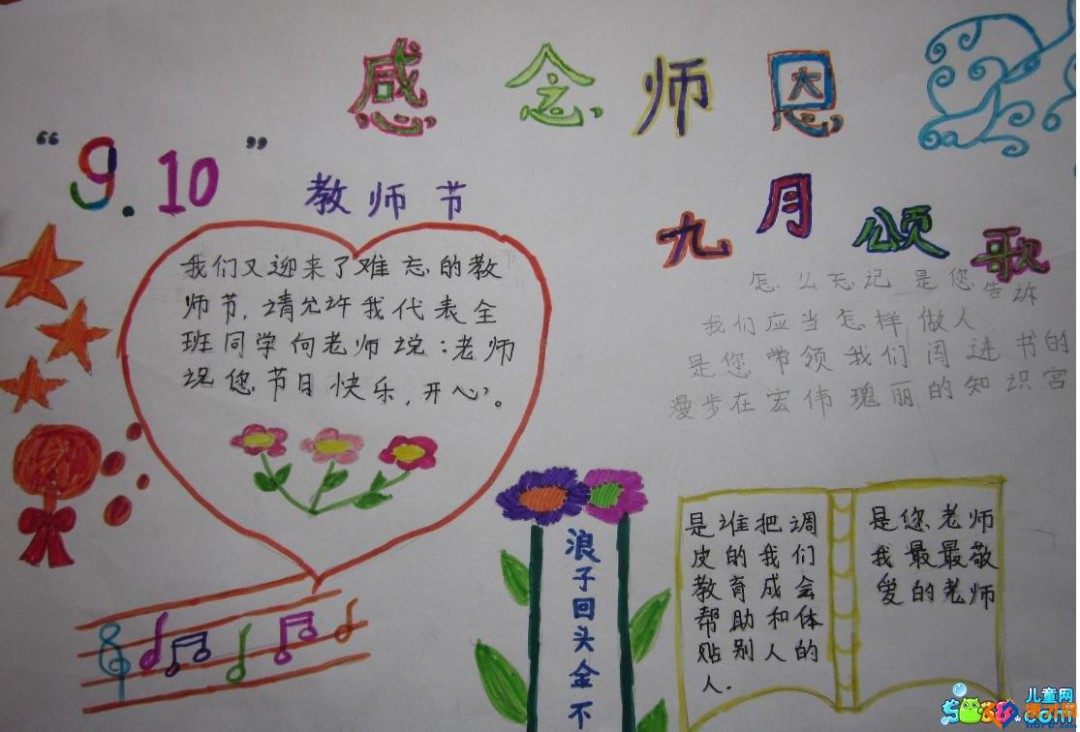 感念师恩
“9.10”
教师节
九月颂歌
我们又迎来了难忘的教
师节，请允许我代表全
班同学向老师说：老师
祝您节日快乐，开心。
怎么忘记 是您告诉
我们应当怎样做人
是您带领我们闯进书的
漫步在宏伟瑰丽的知识宫
浪子回头金不
是谁把调
皮的我们
教育成会
帮助和体
贴别人的
人.
是您老师
我最最敬
爱的老师
儿童网